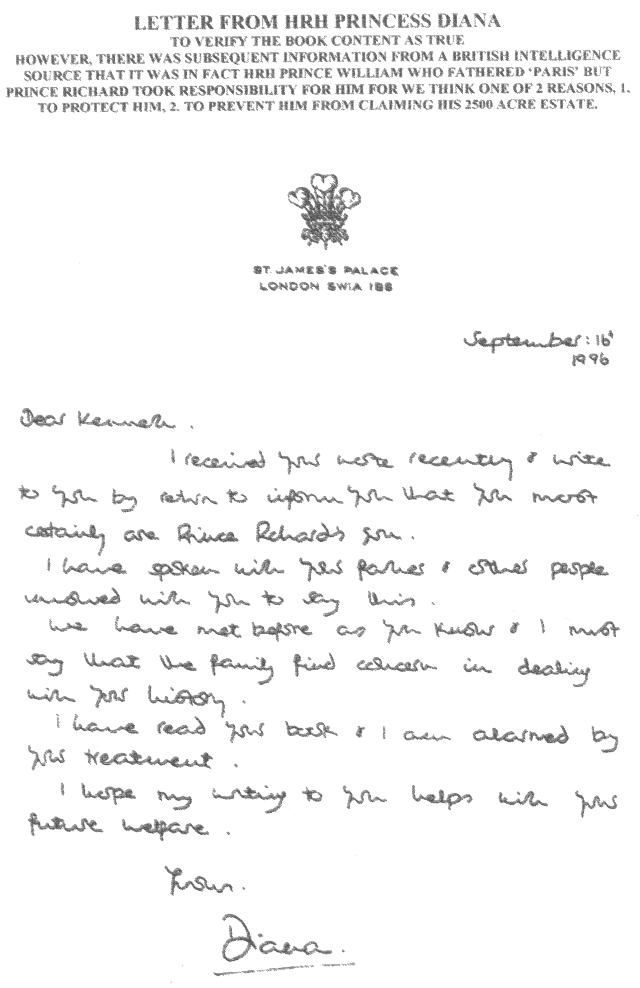 LETTER FROM HRH PRINCESS DIANA
TO VERIFY THE BOOK CONTENT AS TRUE
HOWEVER, THERE WAS SUBSEQUENT INFORMATION FROM A BRITISH INTELLIGENCE
SOURCE THAT IT WAS IN FACT HRH PRINCE WILLIAM WHO FATHERED ‘PARIS’ BUT
PRINCE RICHARD TOOK RESPONSIBILITY FOR HIM FOR WE THINK ONE OF 2 REASONS, 1.
TO PROTECT HIM, 2. TO PREVENT HIM FROM CLAIMING HIS 2500 ACRE ESTATE.
ST. JAMES'S PALACE
LONDON SW1A 1BS
September: 16
1996
Dear Kenneth.
I received your note recently & write
to you by return to inform you that you most
certainly are Prince Richards son.
I have spoken with your father & other people
involved with you to say this.
We have met before as you know & I must
say that the family find concern in dealing
with your history.
I have read your book & I am alarmed by
your treatment.
I hope my writing to you helps with your
future welfare.
Yours.
Diana.